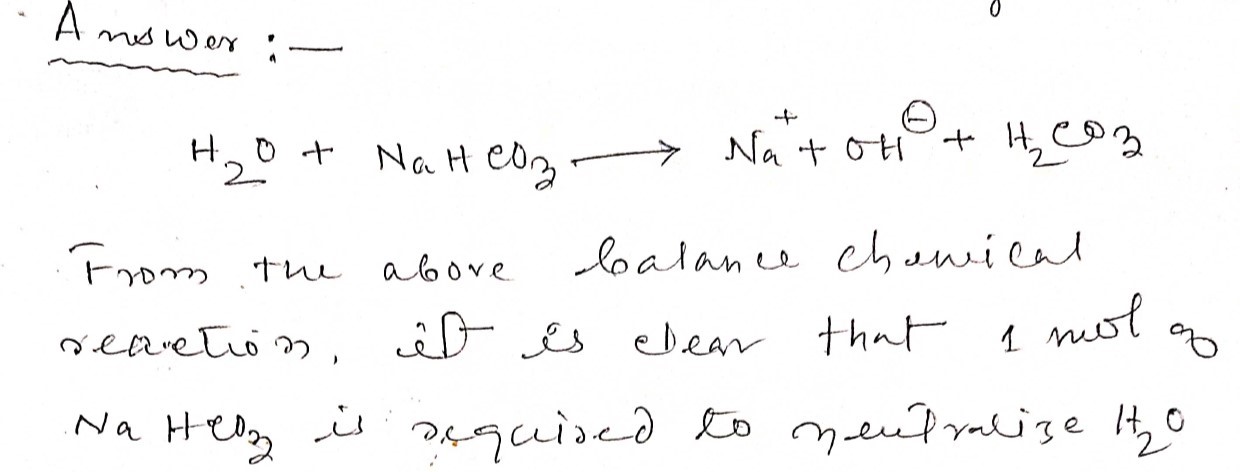 Answer :—
H₂O + NaHCO₃ ⟶ Na⁺ + OH⊖ + H₂CO₃
From the above balance chemical
reaction, it is clear that 1 mol of
NaHCO₃ is required to neutralize H₂O